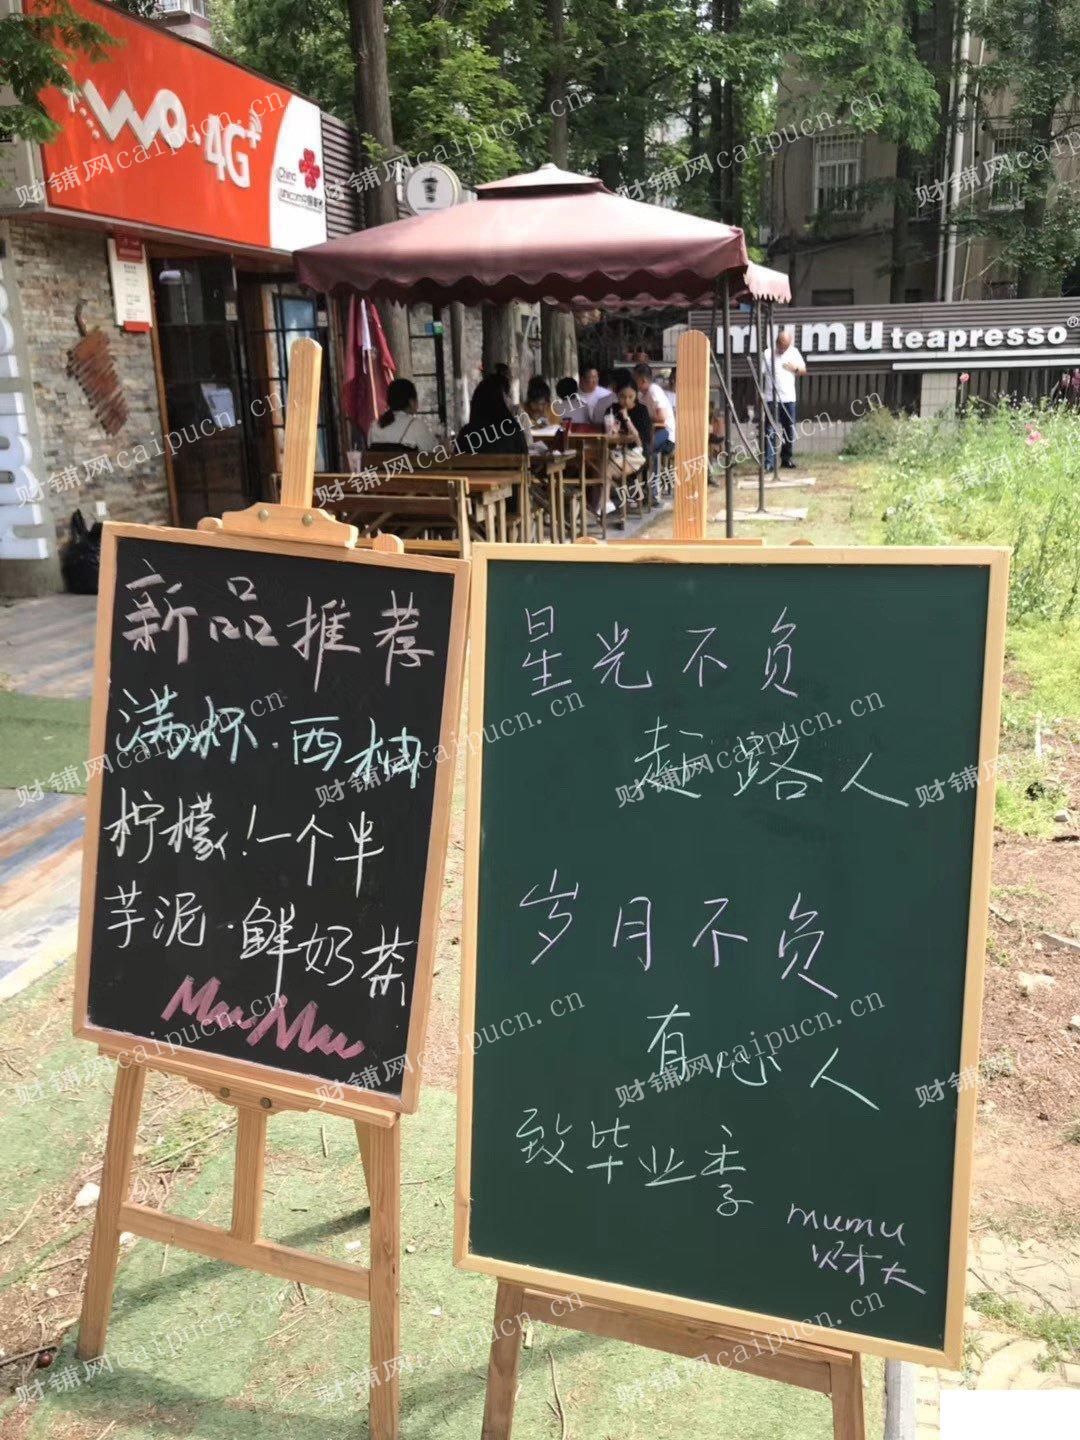 wo.4G+
China
unicom中国联通
mumu teapresso®
新品推荐
满杯·西柚
柠檬！一个半
芋泥·鲜奶茶
MuMu
星光不负
赶路人
岁月不负
有心人
致毕业季
mumu
财大
财铺网caipucn.cn